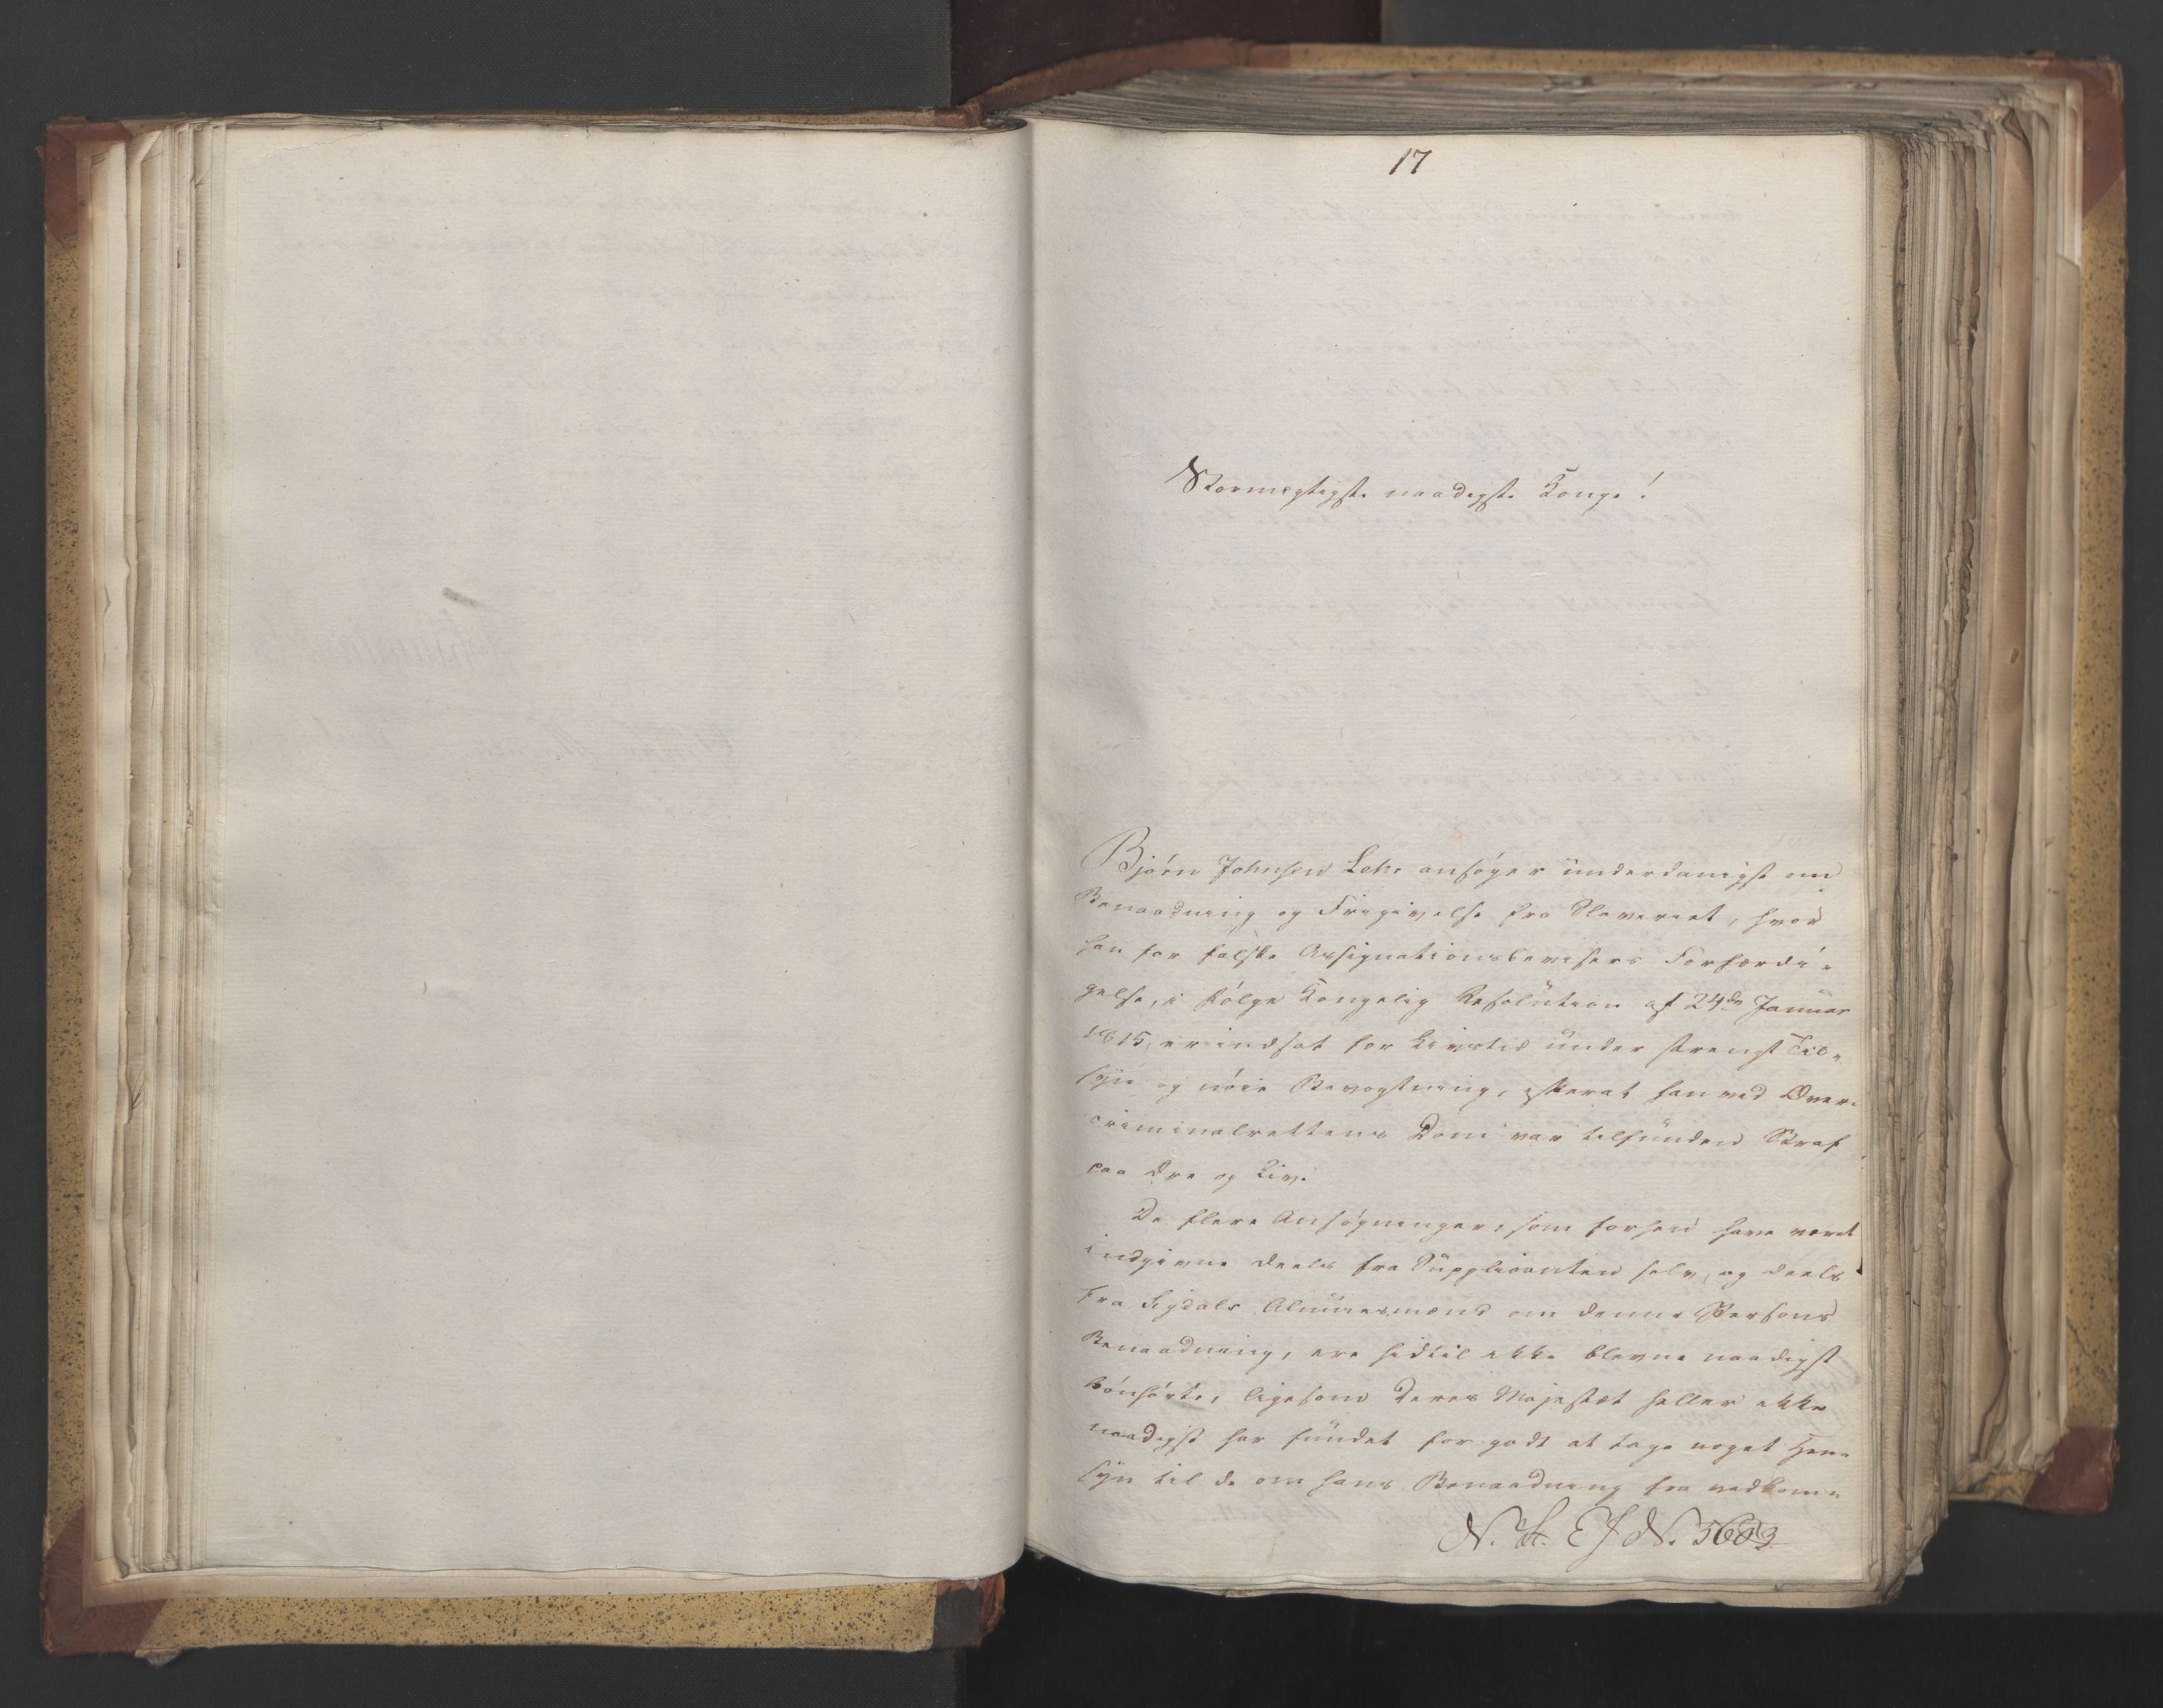 17
Stormægtigste naadigste Konge!
Bjørn Johnsen Lehr ansøger underdanigst om
Benaadning og Frigivelse fra Slaveriet, hvor
han for falske Assignationsbevisers Forfærdi-
gelse, i Følge Kongelig Resolution af 24de Januar
1815, er indsat for Livstid under strengt Til-
syn og nøie Bevogtning, efterat han ved Over-
criminalrettens Dom var tilfunden Straf
paa Ære og Liv.
De flere Ansøgninger, som forhen have været
indgivne deels fra Supplicanten selv, og deels
fra Sigdals Almuesmænd om denne Persons
Benaadning, ere hidtil ikke blevne naadigst
bønhørte, ligesom Deres Majestæt heller ikke
naadigst har fundet for godt at tage noget Hen-
syn til de om hans Benaadning fra vedkom-
N. St. E J N. 5603